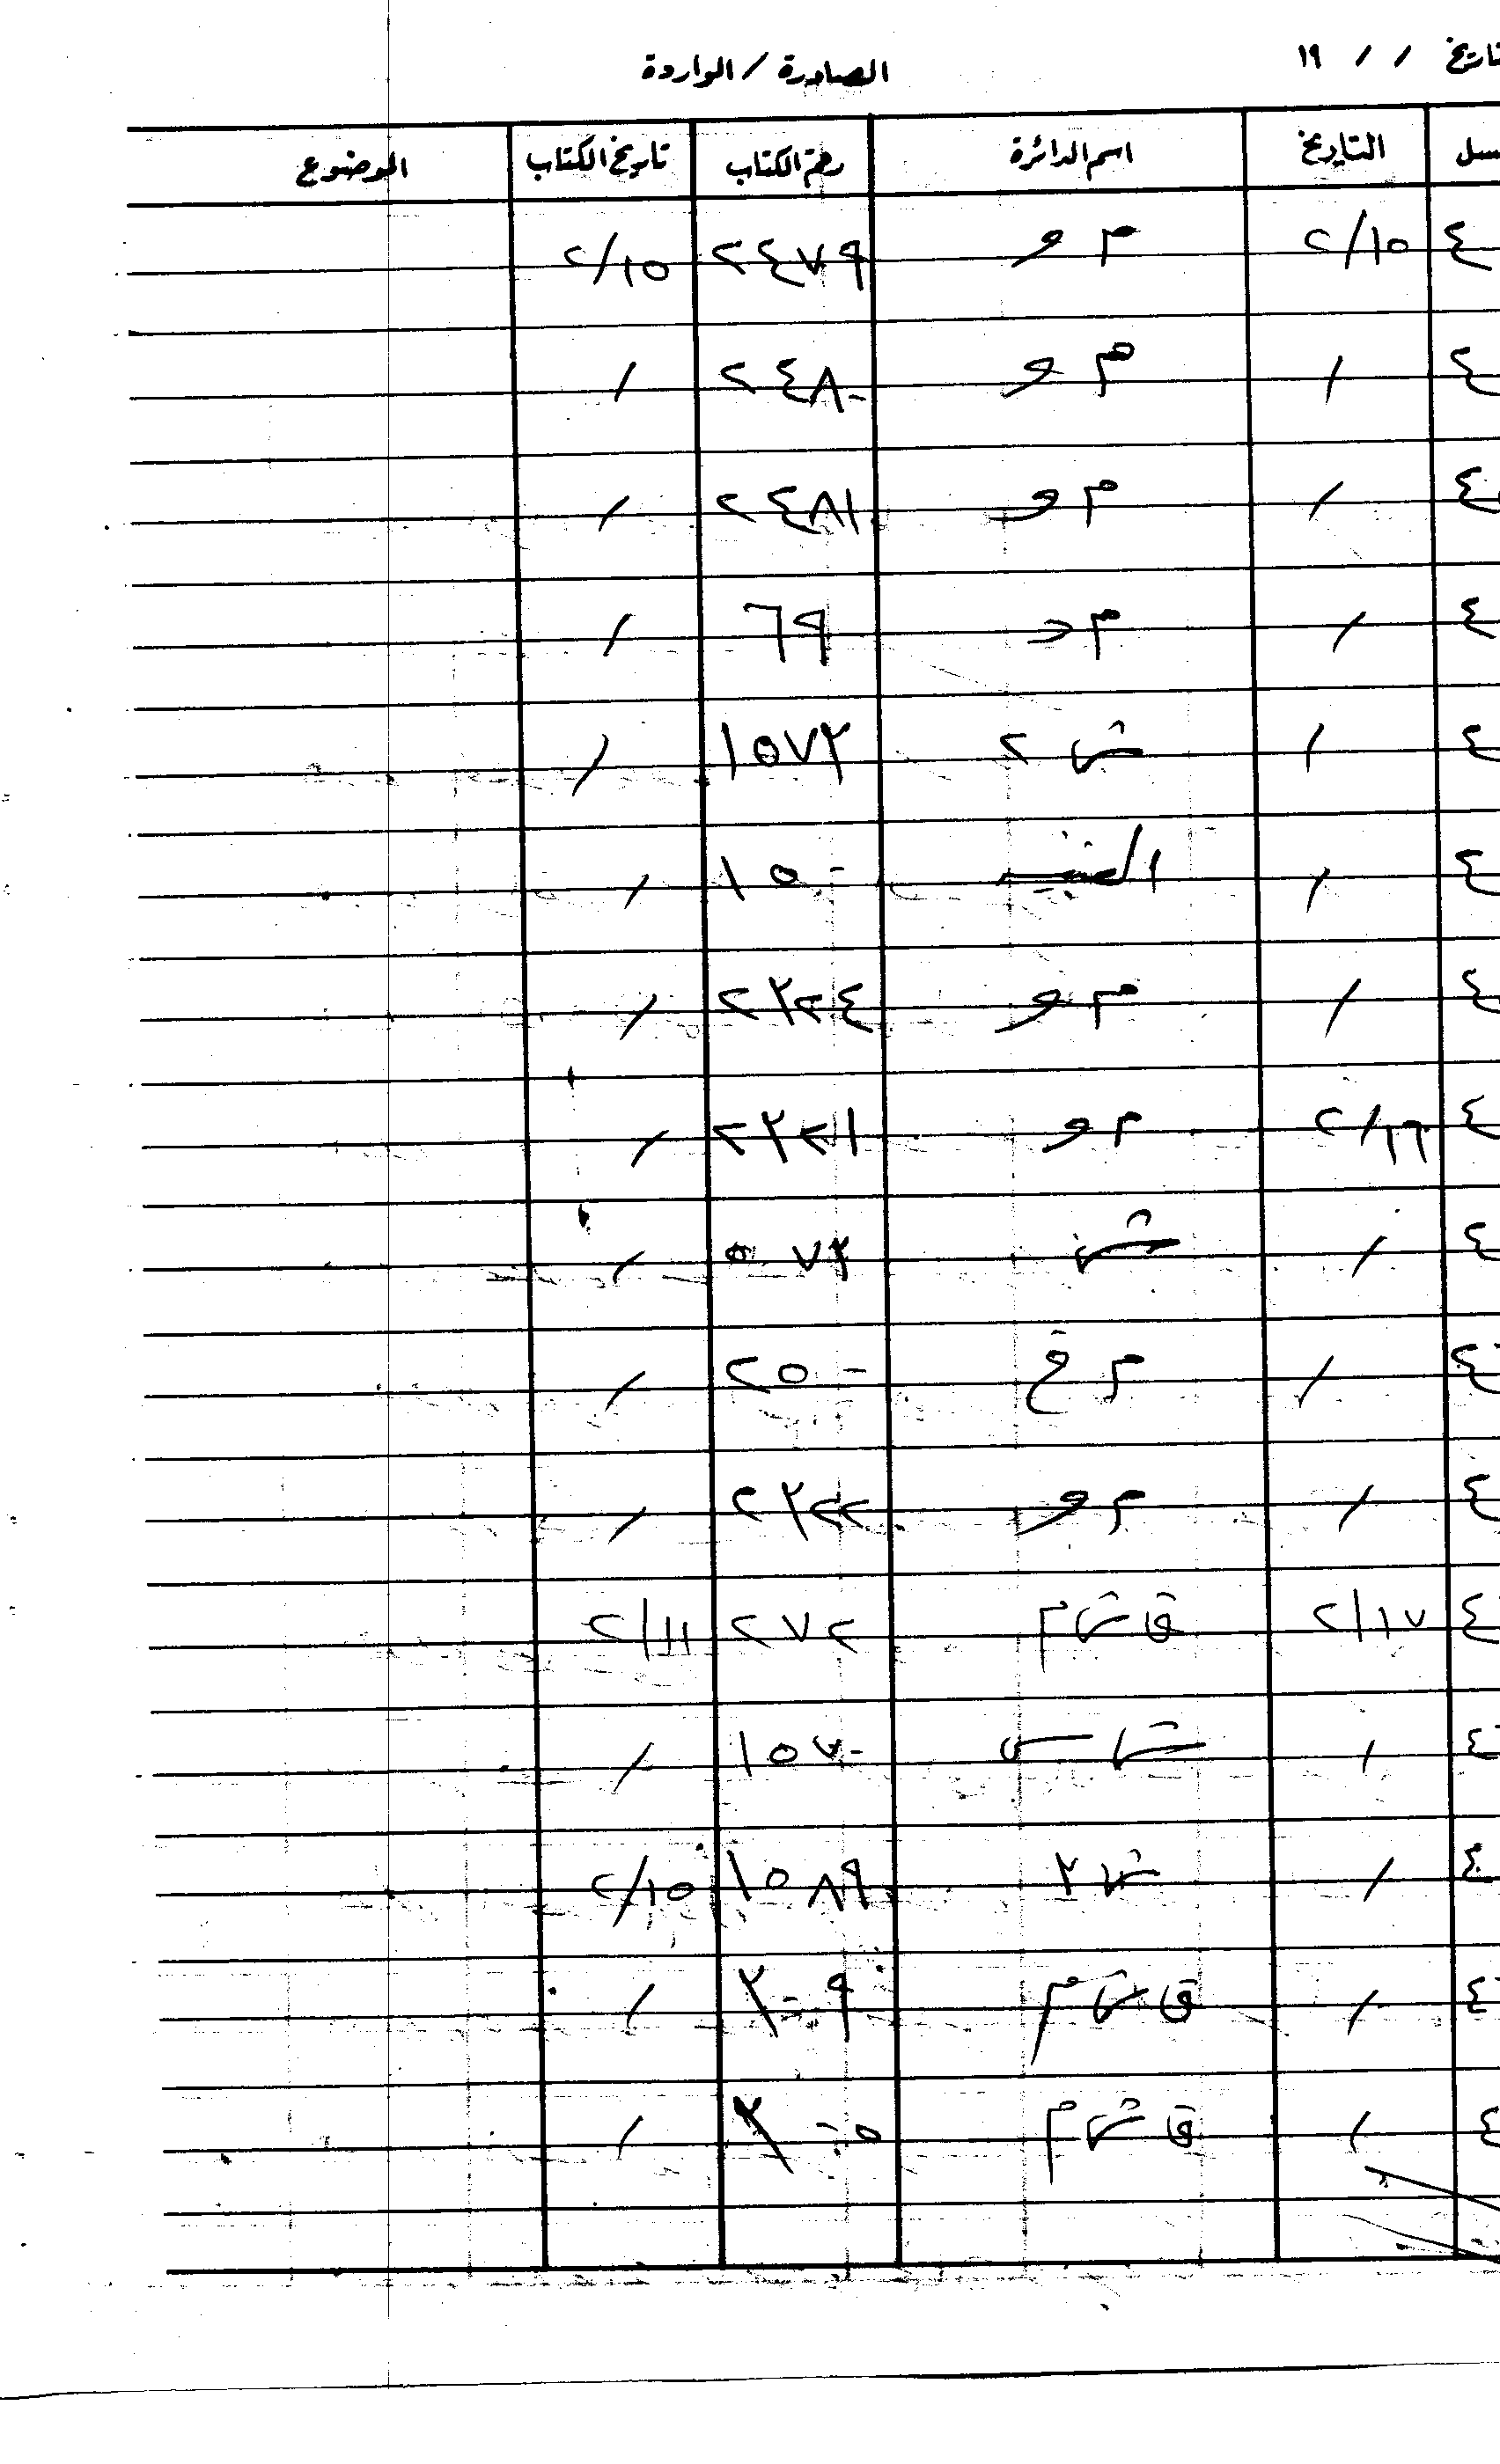 تاريخ / / ١٩
الصادرة / الواردة
التاريخ اسم الدائرة رقم الكتاب تاريخ الكتاب الموضوع
٤ ٢/١٥ م و ٢٤٧٩ ٢/١٥
٤ / م و ٢٤٨٠ /
٤ / م و ٢٤٨١ /
٤ / م ٦٩ /
٤ / ش ٢ ١٥٧٢ /
٤ / ١٥٠ /
٤ / م و ٢٢٢٤ /
٤ ٢/١٦ م و ٢٢٢١ /
٤ / ش ٥٧٢ /
٤ / م ٢٥٠ /
٤ / م و ٢٢٢٢ /
٤ ٢/١٧ ق ش م ٢٧٢ ٢/١١
٤ / ش س ١٥٧٠ /
٤ / ش ٢ ١٥٨٩ ٢/١٥
٤ / ق ش م ٢٠٩ /
٤ / ق ش م ٢٠٥ /